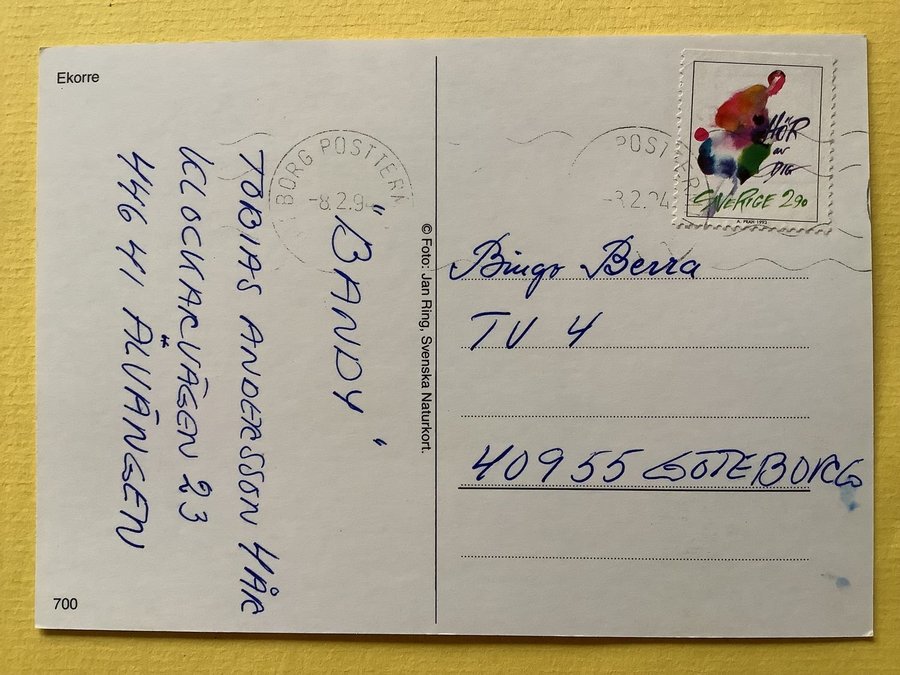 Ekorre
"BANDY"
TOBIAS ANDERSSON 4 ÅR
KLOCKARVÄGEN 23
446 41 ÄLVÄNGEN
700
© Foto: Jan Ring, Svenska Naturkort.
BORG POSTTERM
-8.2.94
POST
HÖR
av
DIG
SVERIGE 2.90
A. PRAH 1993
Bingo Berra
TV 4
40955 GÖTEBORG